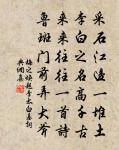 采石江边一堆土
李白之名高千古
来来往往一首诗
鲁班门前弄大斧
梅之焕题李太白墓诗